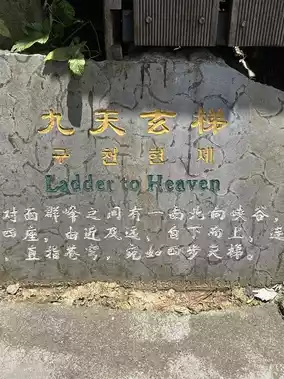 九天玄梯
구천현제
Ladder to Heaven
对面群峰之间有一南北向峡谷,
四座,由近及远,自下而上,连
,直指苍穹,宛如四步天梯。